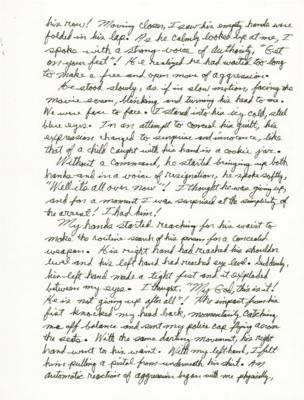 his row! Moving closer, I saw his empty hands were
folded in his lap. As he calmly looked up at me, I
spoke with a strong voice of authority, "Get
on your feet"! He realized he had waited too long
to make a free and open move of aggression.
He stood slowly, as if in slow motion, facing the
movie screen, blinking, and turning his head to me.
We were face to face. I stared into his icy cold, steel
blue eyes. In an attempt to conceal his guilt, his
expression changed to surprise and innocence, like
that of a child caught with his hand in a cookie jar.
Without a command, he started bringing up both
hands and in a voice of resignation, he spoke softly,
"Well it's all over now"! I thought he was giving up,
and for a moment I was surprised at the simplicity of
the arrest! I had him!
My hands started reaching for his waist to
make the routine search of his person for a concealed
weapon. His right hand had reached his shoulder
level and his left hand had reached eye level. Suddenly,
his left hand made a tight fist and it exploded
between my eyes. I thought, "My God, this is it!
He is not giving up after all"! The impact from his
fist knocked my head back, momentarily catching
me off balance and sent my police cap flying across
the seats. With the same darting movement, his right
hand went to his waist. With my left hand, I felt
him pulling a pistol from underneath his shirt. An
automatic reaction of aggression began with me physically,